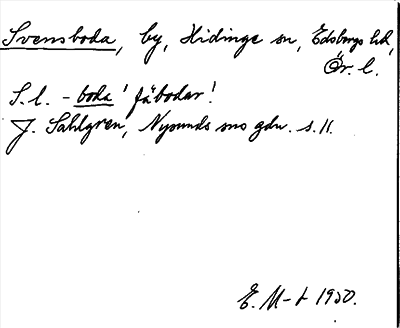 Svensboda, by, Hidinge sn, Edsbergs hd,
Ör. l.
S. l. - boda 'fäbodar'.
J. Sahlgren, Nysunds sns gdn. s. 11.
E. M-t 1930.